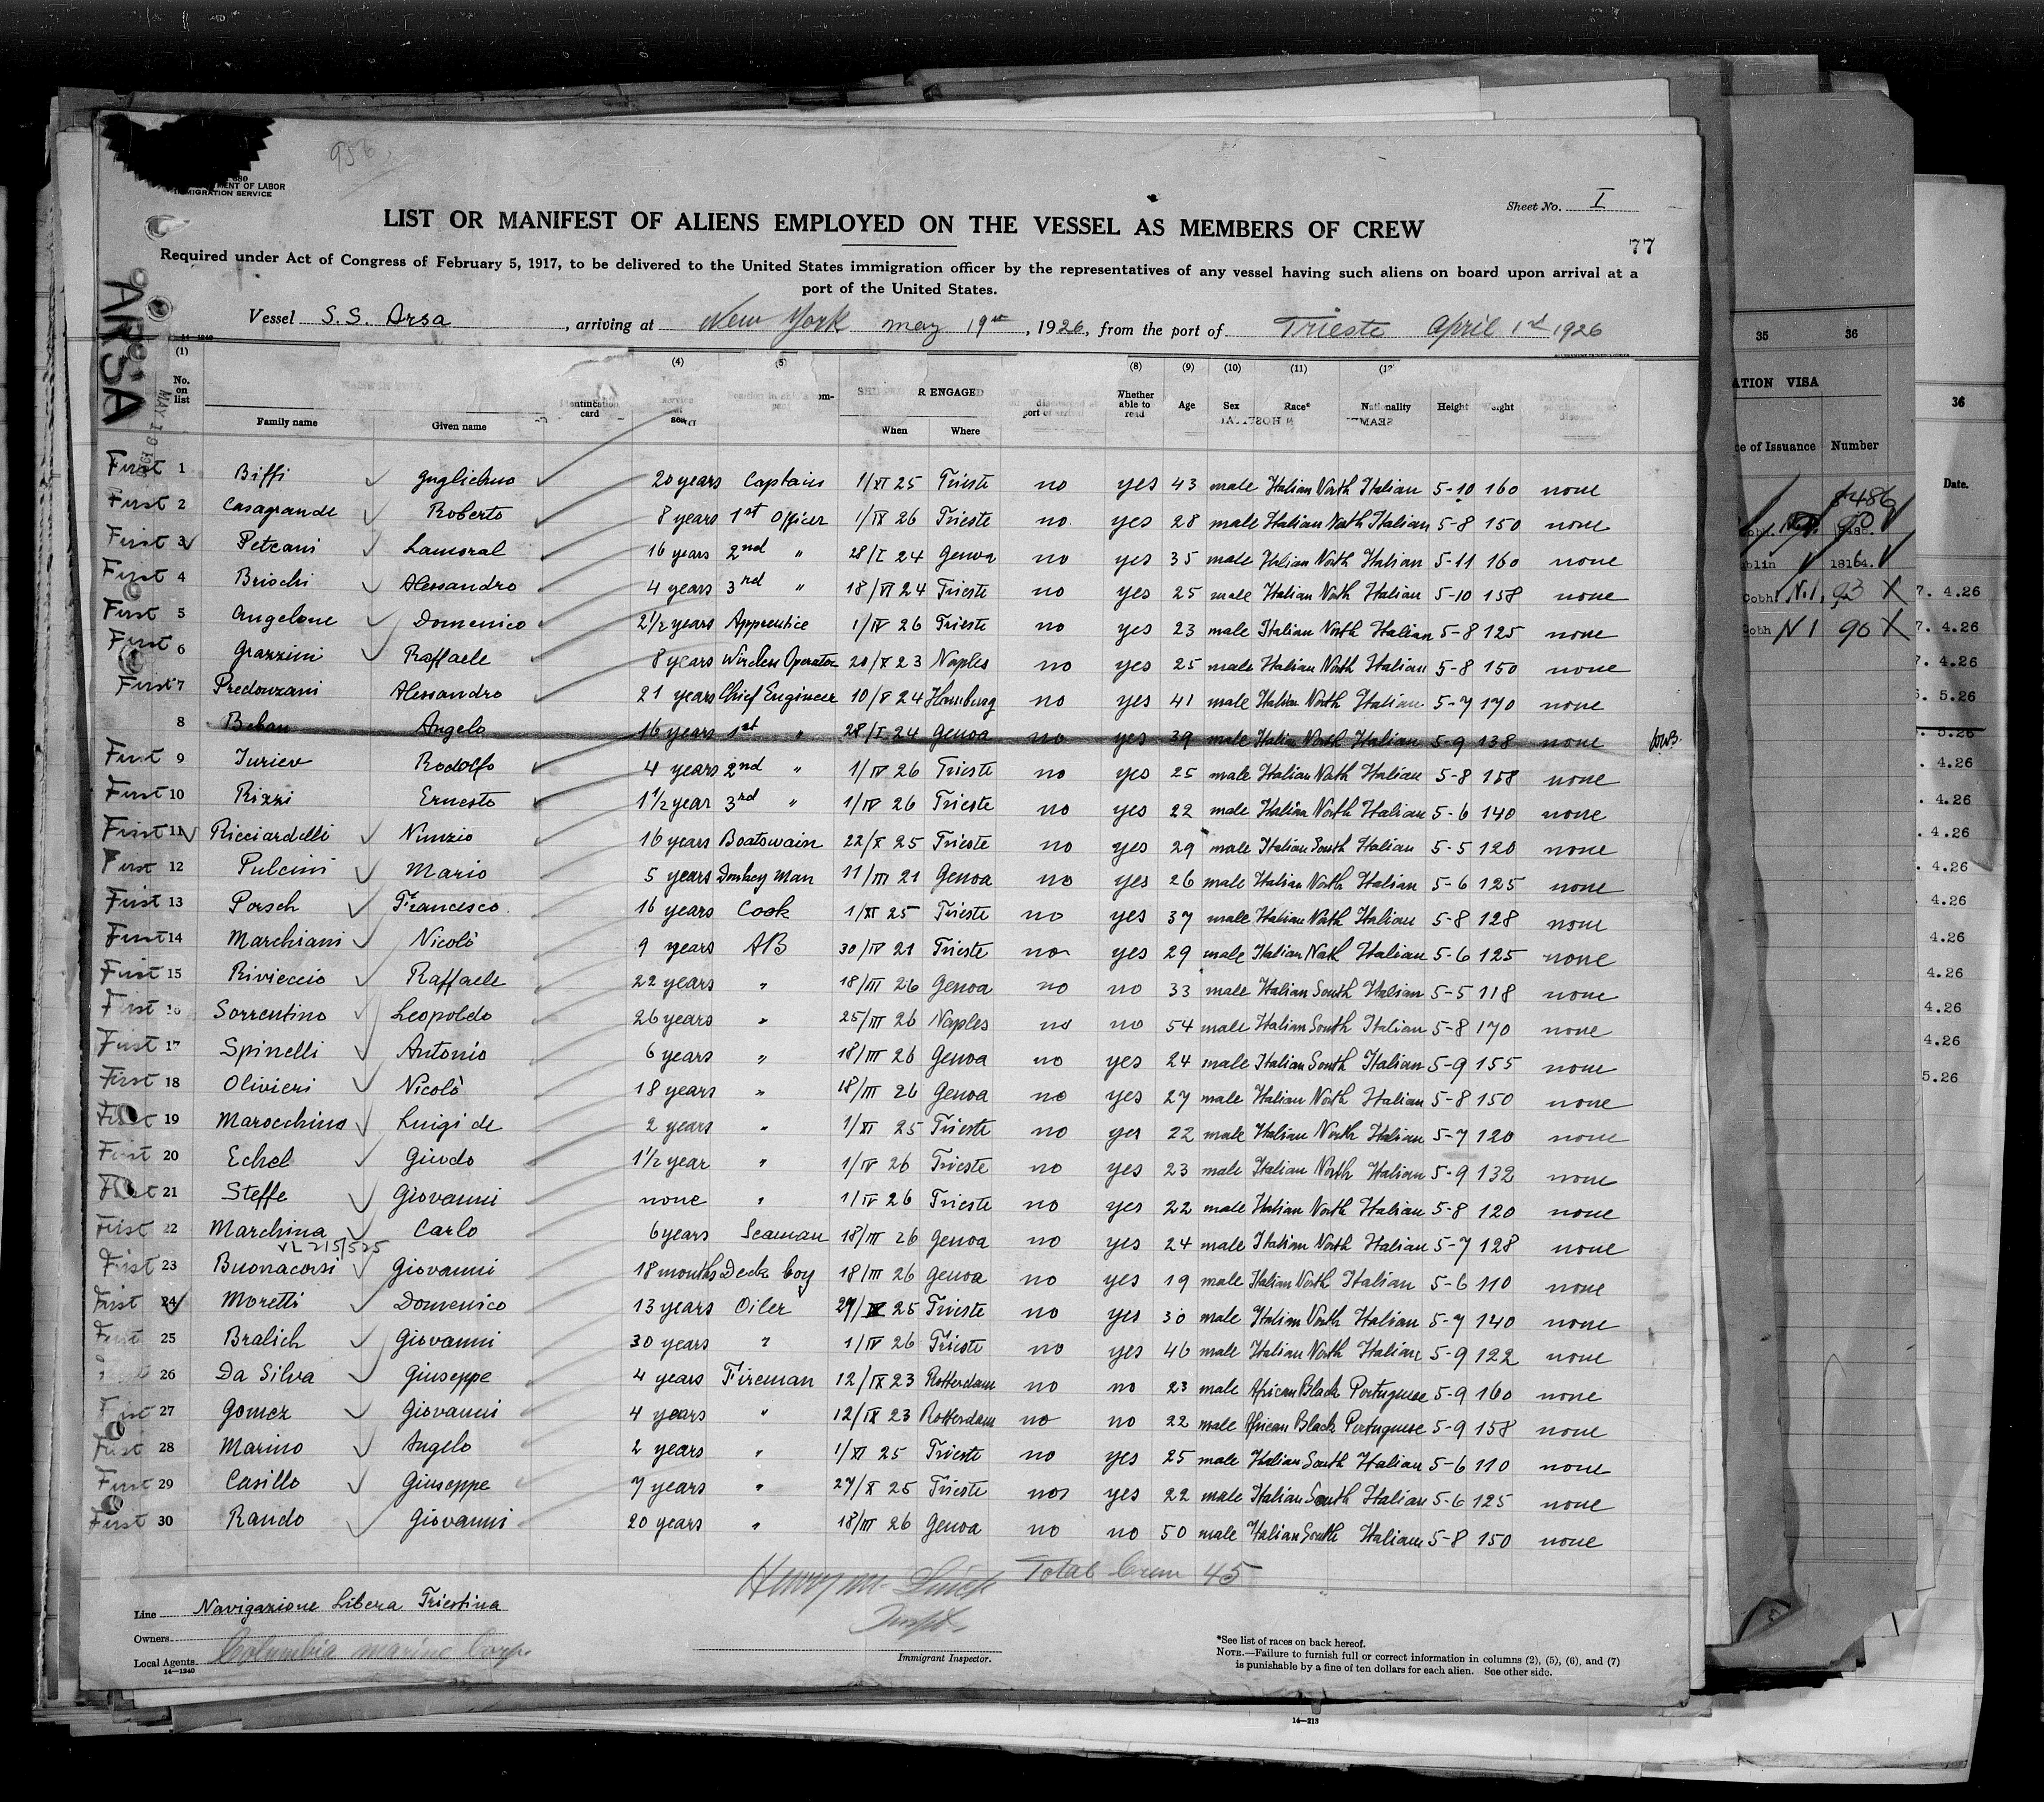 956.
680
MENT OF LABOR
IMMIGRATION SERVICE
Sheet No. I
LIST OR MANIFEST OF ALIENS EMPLOYED ON THE VESSEL AS MEMBERS OF CREW
77
Required under Act of Congress of February 5, 1917, to be delivered to the United States immigration officer by the representatives of any vessel having such aliens on board upon arrival at a
port of the United States.
Vessel S.S. Arsa, arriving at New York may 19th, 1926, from the port of Trieste April 1st 1926
ARSA
(1) (4) (5) (8) (9) (10) (11)
No. on list Family name Given name Identification card R ENGAGED When Where port of arrival Whether able to read Age Sex Race* Nationality Height
First 1 Biffi Guglielmo 20 years Captain 1/XI 25 Trieste no yes 43 male Italian North Italian 5-10 160 none
First 2 Casagrande Roberto 8 years 1st Officer 1/IV 26 Trieste no yes 28 male Italian North Italian 5-8 150 none
First 3 Petcani Lamoral 16 years 2nd " 28/I 24 Genoa no yes 35 male Italian North Italian 5-11 160 none
First 4 Brischi Alessandro 4 years 3rd " 18/VI 24 Trieste no yes 25 male Italian North Italian 5-10 158 none
First 5 Angelone Domenico 2 1/2 years Apprentice 1/IV 26 Trieste no yes 23 male Italian North Italian 5-8 125 none
First 6 Grazzini Raffaele 8 years Wireless Operator 20/X 23 Naples no yes 25 male Italian North Italian 5-8 150 none
First 7 Predonzani Alessandro 21 years Chief Engineer 10/V 24 Hamburg no yes 41 male Italian North Italian 5-7 170 none
8 Beban Angelo 16 years 1st " 28/I 24 Genoa no yes 39 male Italian North Italian 5-9 138 none
First 9 Iuriev Rodolfo 4 years 2nd " 1/IV 26 Trieste no yes 25 male Italian North Italian 5-8 158 none
First 10 Rizzi Ernesto 1 1/2 year 3rd " 1/IV 26 Trieste no yes 22 male Italian North Italian 5-6 140 none
First 11 Ricciardelli Nunzio 16 years Boatswain 22/X 25 Trieste no yes 29 male Italian South Italian 5-5 120 none
First 12 Pulcini Mario 5 years Donkey man 11/III 21 Genoa no yes 26 male Italian North Italian 5-6 125 none
First 13 Porsch Francesco 16 years Cook 1/XI 25 Trieste no yes 37 male Italian North Italian 5-8 128 none
First 14 Marchiani Nicolò 9 years AB 30/IV 21 Trieste no yes 29 male Italian North Italian 5-6 125 none
First 15 Rivieccio Raffaele 22 years " 18/III 26 Genoa no no 33 male Italian South Italian 5-5 118 none
First 16 Sorrentino Leopoldo 26 years " 25/III 26 Naples no no 54 male Italian South Italian 5-8 170 none
First 17 Spinelli Antonio 6 years " 18/III 26 Genoa no yes 24 male Italian South Italian 5-9 155 none
First 18 Olivieri Nicolò 18 years " 18/III 26 Genoa no yes 27 male Italian North Italian 5-8 150 none
First 19 Marocchino Luigi de 2 years " 1/XI 25 Trieste no yes 22 male Italian North Italian 5-7 120 none
First 20 Echel Guido 1 1/2 year " 1/IV 26 Trieste no yes 23 male Italian North Italian 5-9 132 none
First 21 Steffe Giovanni none " 1/IV 26 Trieste no yes 22 male Italian North Italian 5-8 120 none
First 22 Marchina Carlo 6 years Seaman 18/III 26 Genoa no yes 24 male Italian North Italian 5-7 128 none
VL 215/525
First 23 Buonacorsi Giovanni 18 months Deck boy 18/III 26 Genoa no yes 19 male Italian North Italian 5-6 110 none
First 24 Moretti Domenico 13 years Oiler 25 Trieste no yes 30 male Italian North Italian 5-7 140 none
First 25 Bralich Giovanni 30 years " 1/IV 26 Trieste no yes 46 male Italian North Italian 5-9 122 none
26 Da Silva Giuseppe 4 years Fireman 12/IX 23 Rotterdam no no 23 male African Black Portuguese 5-9 160 none
First 27 Gomez Giovanni 4 years " 12/IX 23 Rotterdam no no 22 male African Black Portuguese 5-9 158 none
First 28 Marino Angelo 2 years " 1/XI 25 Trieste no yes 25 male Italian South Italian 5-6 110 none
First 29 Casillo Giuseppe 7 years " 27/X 25 Trieste no yes 22 male Italian South Italian 5-6 125 none
First 30 Rando Giovanni 20 years " 18/III 26 Genoa no no 50 male Italian South Italian 5-8 150 none
Total Crew 45
Line Navigazione Libera Triestina
Owners
Local Agents Columbia marine Corp.
14—1240
Immigrant Inspector.
*See list of races on back hereof.
NOTE.—Failure to furnish full or correct information in columns (2), (5), (6), and (7)
is punishable by a fine of ten dollars for each alien. See other side.
14—213
35 36
ATION VISA
ce of Issuance Number
8486
blin 18164.
Cobh N.1. 93 X
Cobh N 1 90 X
36
Date.
7. 4.26
7. 4.26
7. 4.26
5. 5.26
. 5.26
. 4.26
. 4.26
. 4.26
. 4.26
. 4.26
4.26
4.26
4.26
4.26
5.26